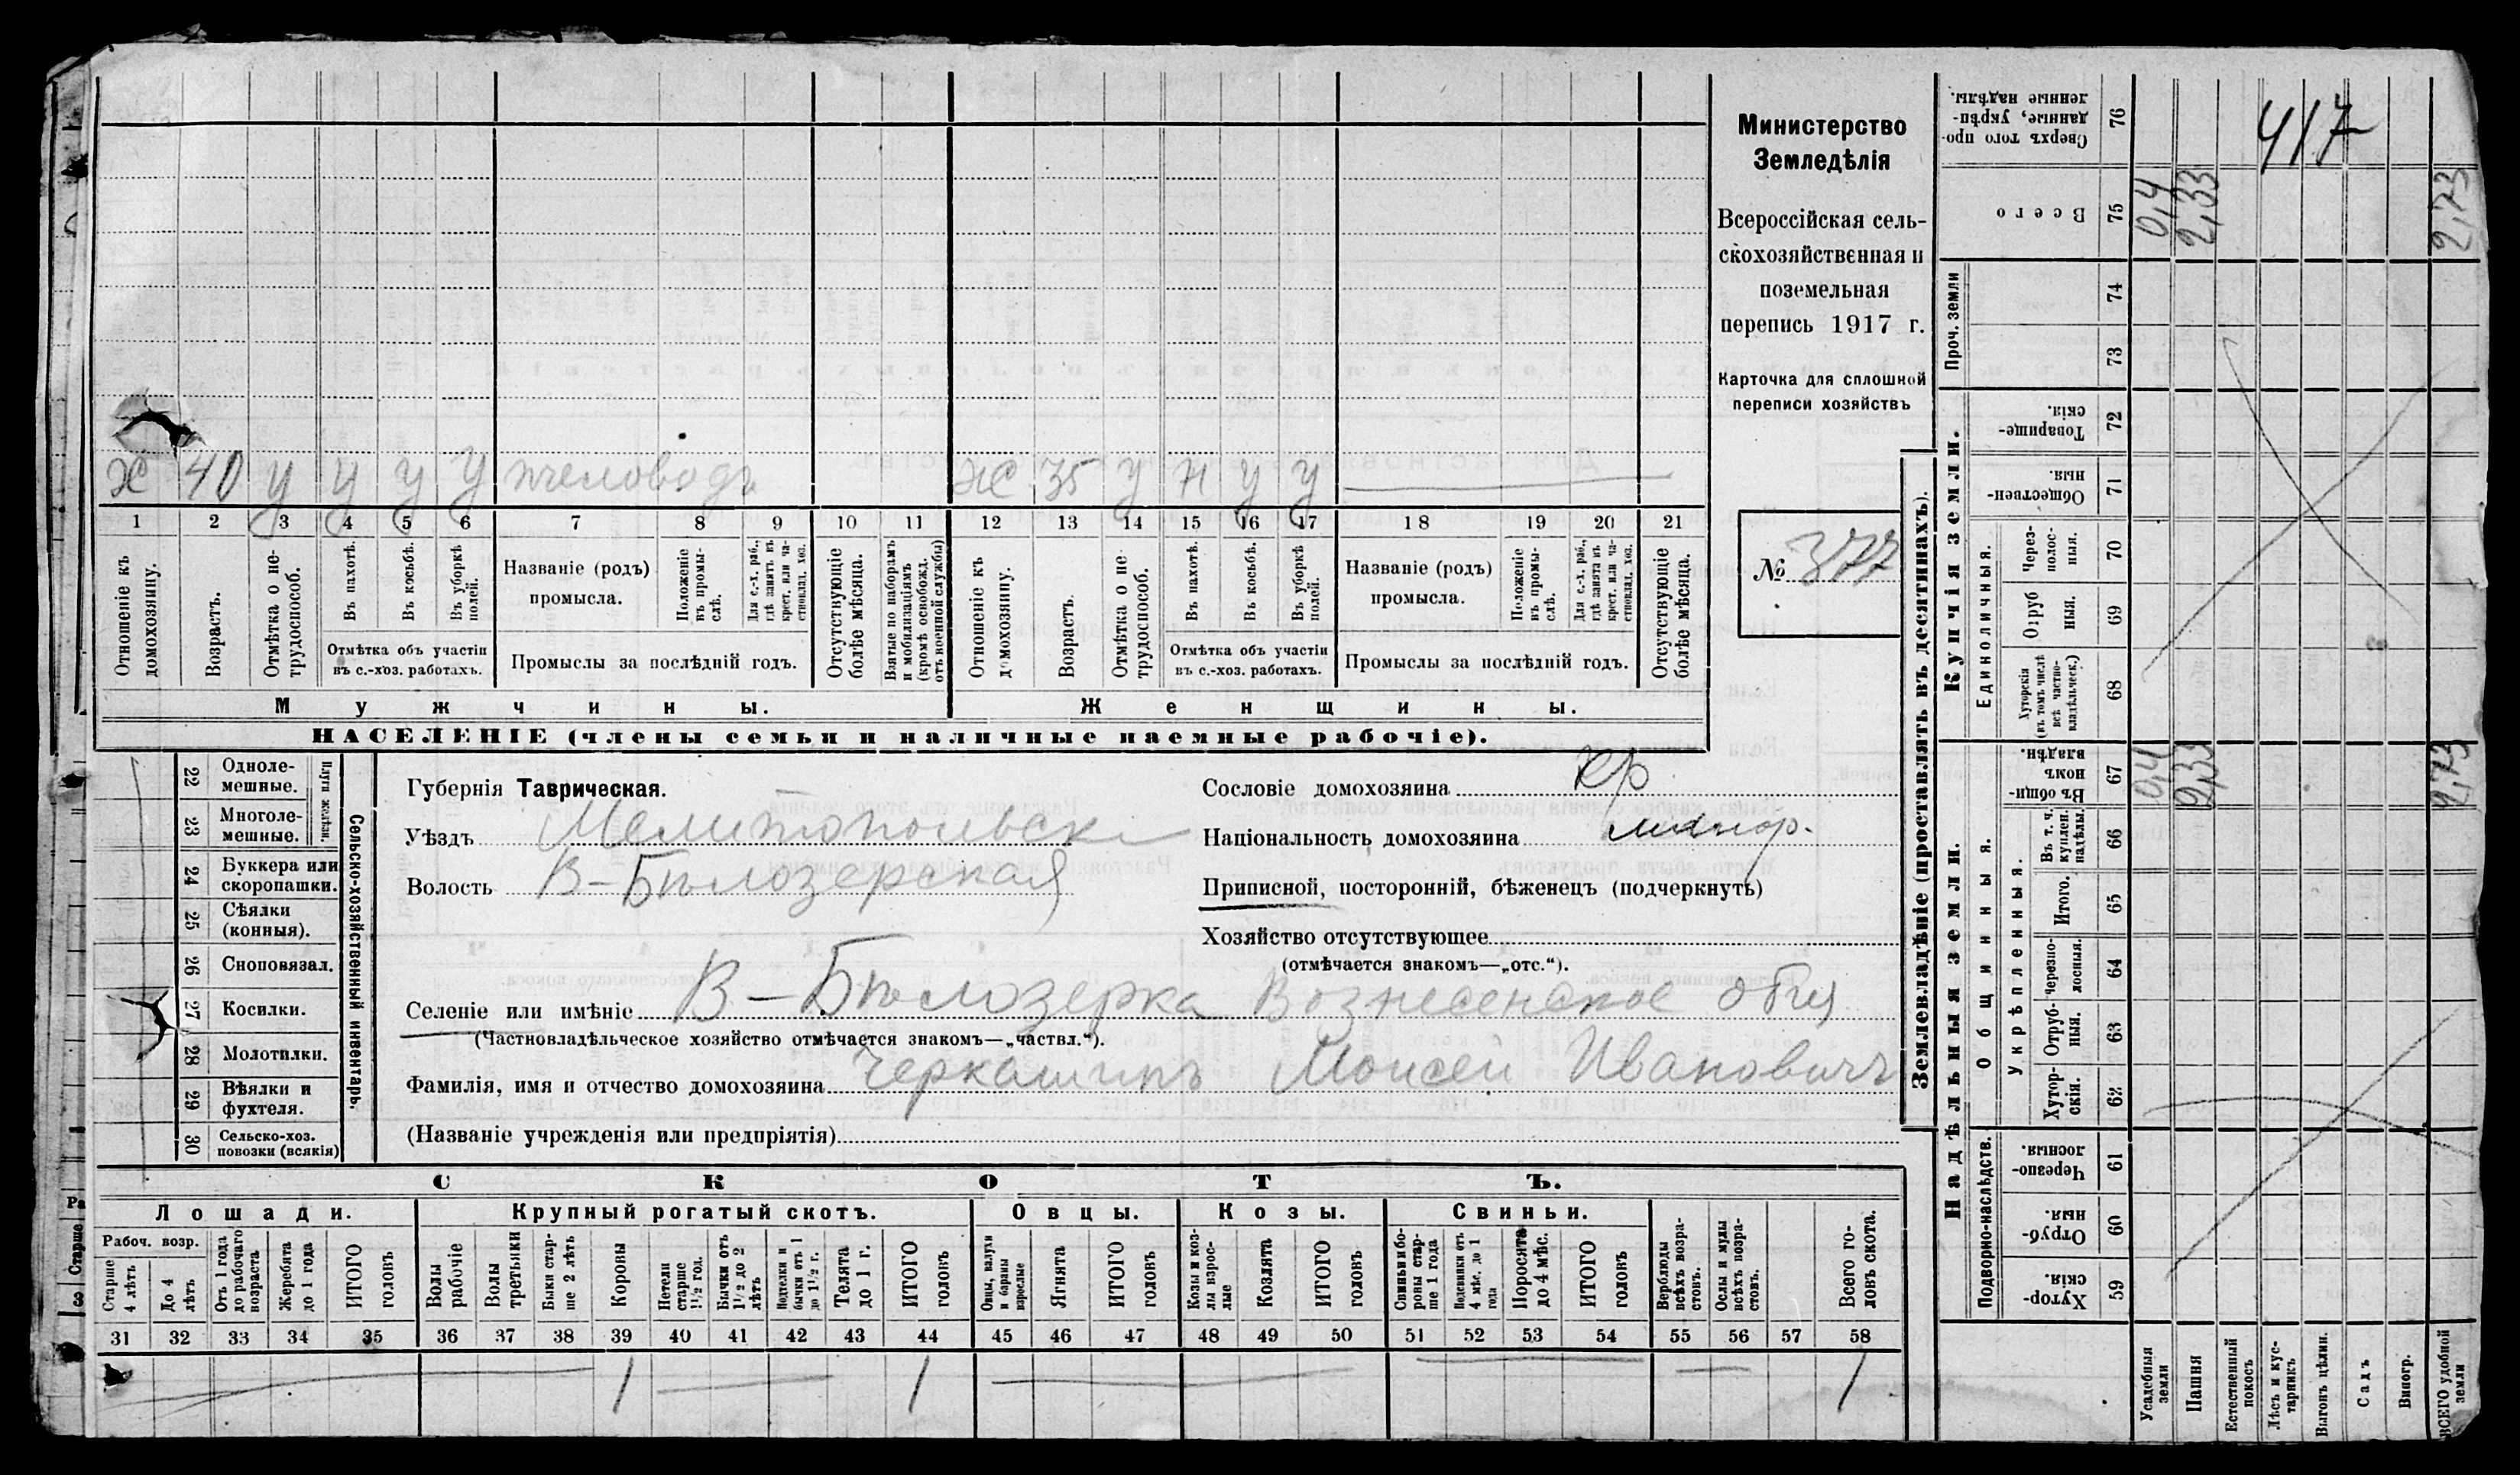 Х 40 У У У У пчеловодъ Ж 35 У Н У У
1 2 3 4 5 6 7 8 9 10 11 12 13 14 15 16 17 18 19 20 21
Отношеніе къ домохозяину.
Возрастъ.
Отмѣтка о не-трудоспособ.
Въ пахотѣ.
Въ косьбѣ.
Въ уборкѣ полей.
Отмѣтка объ участіи
въ с.-хоз. работахъ.
Названіе (родъ)
промысла.
Положеніе въ промы-слѣ.
Для с.-х. раб., гдѣ занятъ въ крест. или ча-стновлад. хоз.
Промыслы за послѣдній годъ.
Отсутствующіе болѣе мѣсяца.
Взятые по наборамъ и мобилизаціямъ (кромѣ освобожд. отъ военной службы)
Отношеніе къ домохозяину.
Возрастъ.
Отмѣтка о не-трудоспособ.
Въ пахотѣ.
Въ косьбѣ.
Въ уборкѣ полей.
Отмѣтка объ участіи
въ с.-хоз. работахъ.
Названіе (родъ)
промысла.
Положеніе въ промы-слѣ.
Для с.-х. раб., гдѣ занята въ крест. или ча-стновлад. хоз.
Промыслы за послѣдній годъ.
Отсутствующіе болѣе мѣсяца.
Мужчины.
Женщины.
НАСЕЛЕНІЕ (члены семьи и наличные наемные рабочіе).
Министерство
Земледѣлія
Всероссійская сель-
скохозяйственная и
поземельная
перепись 1917 г.
Карточка для сплошной
переписи хозяйствъ
№ 377
22 Одноле-мешные.
23 Многоле-мешные.
24 Буккера или скоропашки.
25 Сѣялки (конныя).
26 Сноповязал.
27 Косилки.
28 Молотилки.
29 Вѣялки и фухтеля.
30 Сельско-хоз. повозки (всякія)
Сельско-хозяйственный инвентарь.
Губернія Таврическая.
Уѣздъ Мелитопольск
Волость В-Бѣлозерская
Сословіе домохозяина кр
Національность домохозяина
Приписной, посторонній, бѣженецъ (подчеркнуть)
Хозяйство отсутствующее
(отмѣчается знакомъ—„отс.“).
Селеніе или имѣніе В-Бѣлозерка Вознесенское общ
(Частновладѣльческое хозяйство отмѣчается знакомъ—„частвл.“).
Фамилія, имя и отчество домохозяина Черкашинъ Моисей Ивановичъ
(Названіе учрежденія или предпріятія)
СКОТЪ.
Лошади.
Крупный рогатый скотъ.
Овцы.
Козы.
Свиньи.
Рабоч. возр.
Старше 4 лѣтъ
До 4 лѣтъ
Отъ 1 года до рабочаго возраста
Жеребята до 1 года
ИТОГО головъ
Волы рабочіе
Волы третьяки
Быки стар-ше 2 лѣтъ
Коровы
Нетели старше 1½ год.
Бычки отъ 1½ до 2 лѣтъ
Подтелки и бычки отъ 1 до 1½ г.
Телята до 1 г.
ИТОГО головъ
Овцы, валухи и бараны взрослые
Ягнята
ИТОГО головъ
Козы и коз-лы взрос-лые
Козлята
ИТОГО головъ
Свиньи и бо-ровы стар-ше 1 года
Подсвинки отъ 4 мѣс. до 1 года
Поросята до 4 мѣс.
ИТОГО головъ
Верблюды всѣхъ возра-стовъ.
Ослы и мулы всѣхъ возра-стовъ.
Всего го-ловъ скота.
31 32 33 34 35 36 37 38 39 40 41 42 43 44 45 46 47 48 49 50 51 52 53 54 55 56 57 58
1 1 1
Землевладѣніе (проставлять въ десятинахъ).
Купчія земли.
Надѣльныя земли.
76 Сверхъ того про-данные, укрѣп-ленные надѣлы.
417
75 Всего 0,4 2,33 2,73
Проч. земли
74
73
72 Товарище-скія.
71 Обществен-ныя.
Единоличныя.
70 Через-полос-ныя.
69 Отруб ныя.
68 Хуторскія (въ томъ числѣ всѣ частно-владѣльческ.)
67 Въ общи-номъ владѣн. 0,4 2,33 2,73
Общинныя.
Укрѣпленныя.
66 Въ т. ч. куплен. надѣлы.
65 Итого.
64 Черезпо-лосныя.
63 Отруб-ныя.
62 Хутор-скія.
Подворно-наслѣдств.
61 Черезпо-лосныя.
60 Отруб-ныя.
59 Хутор-скія.
Усадебныя земли
Пашня
Естественный покосъ
Лѣсъ и кус-тарникъ
Выгонъ цѣлин.
Садъ
Виногр.
ВСЕГО удобной земли